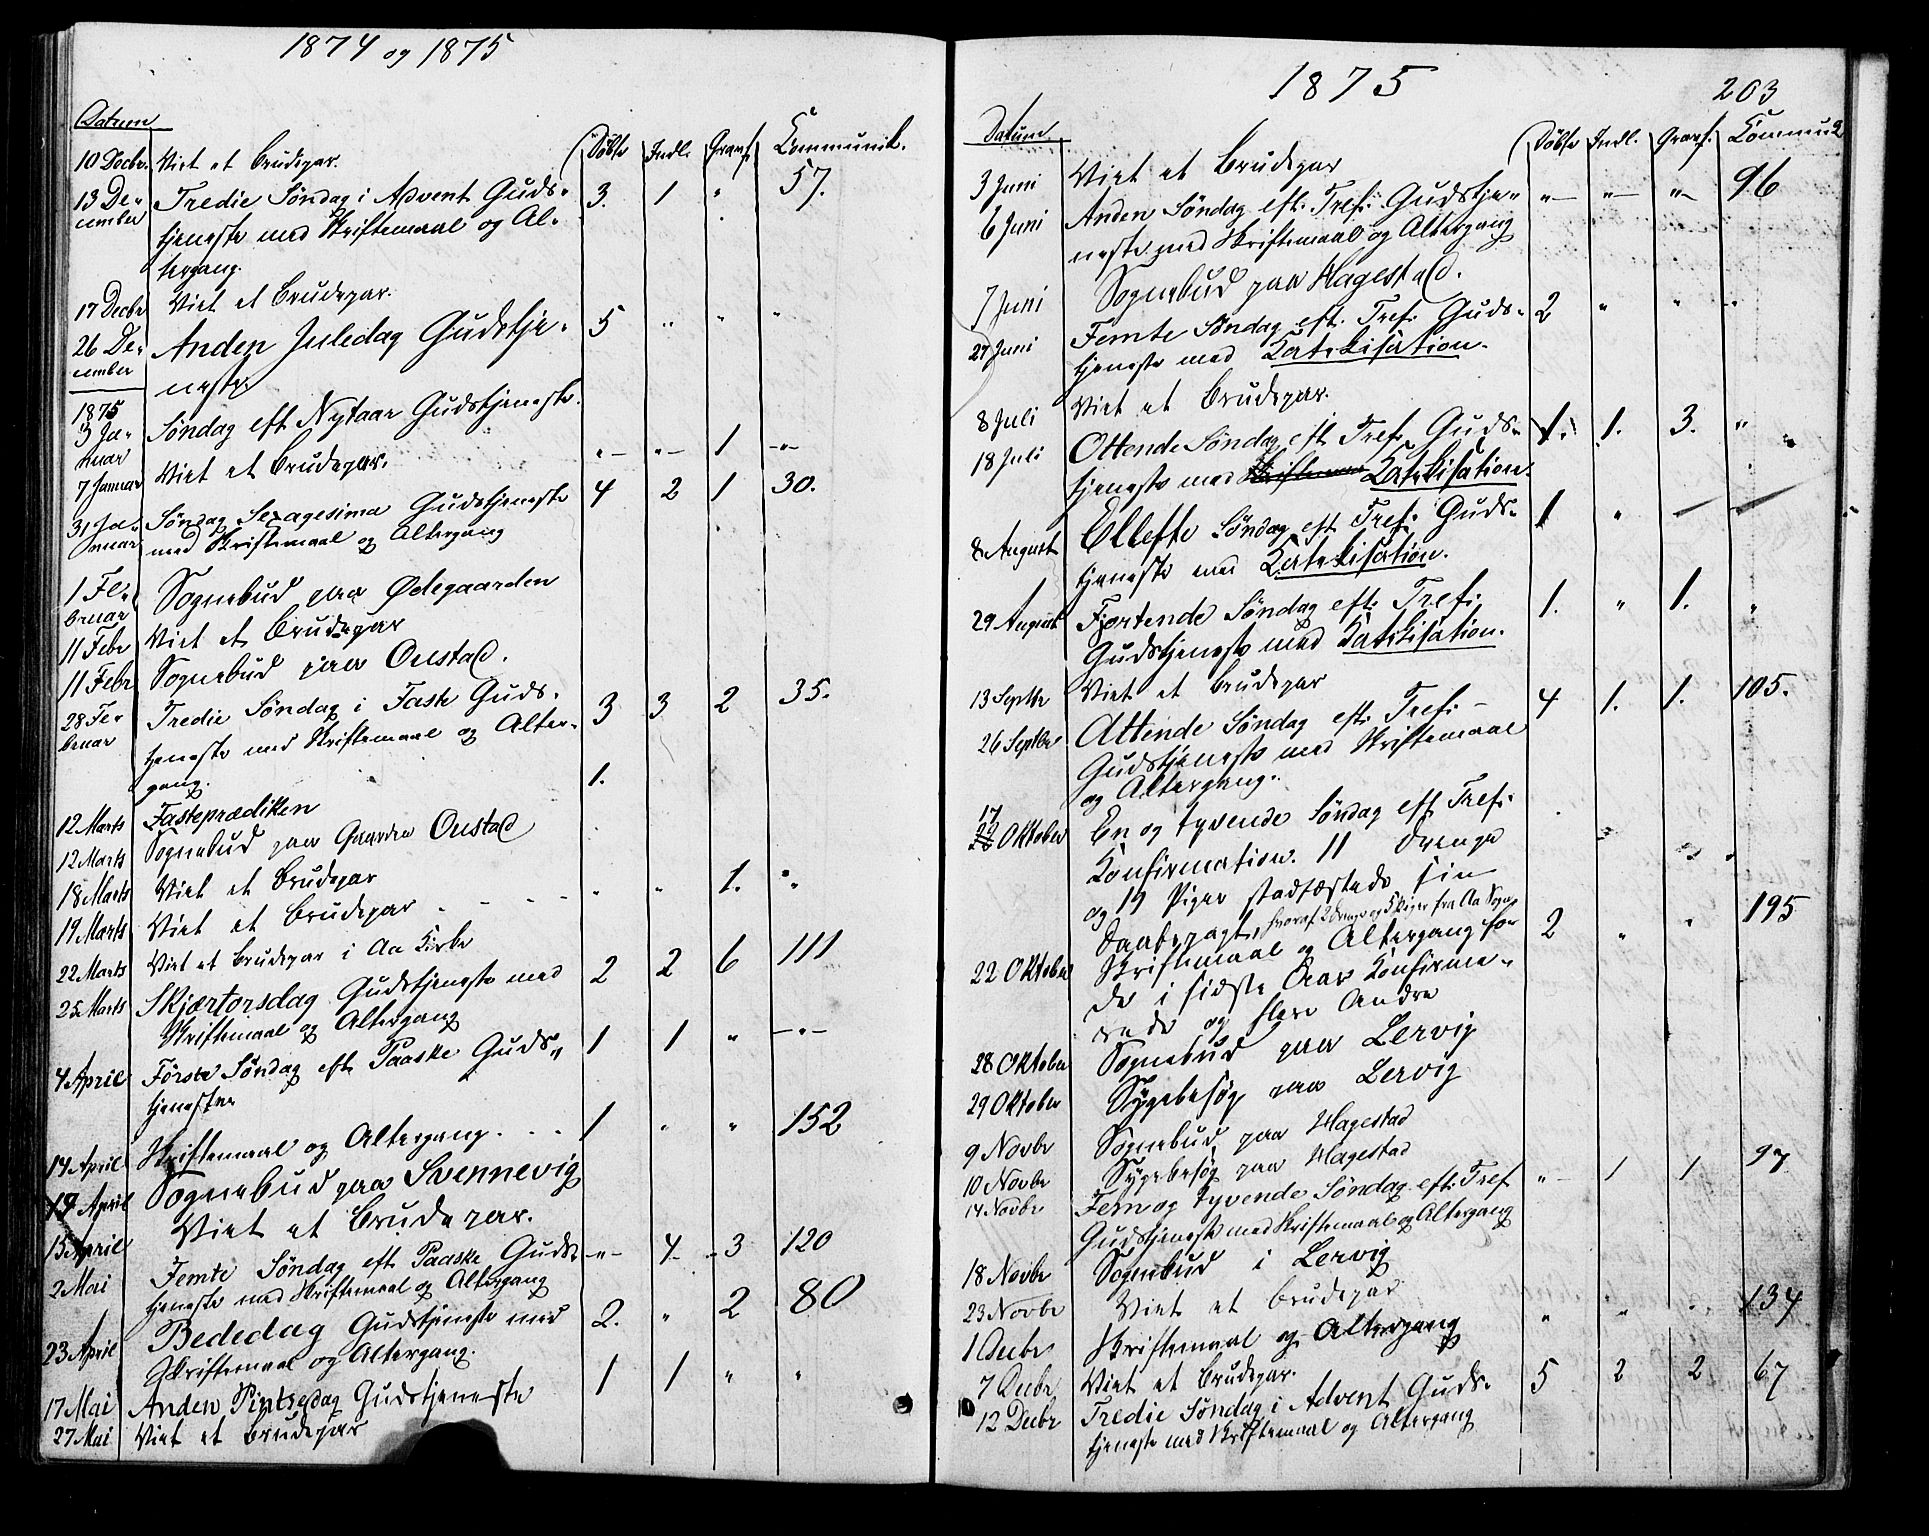 1874 og 1875
Datum Döbte Indl. Graaf. Communik.
10 Decbr. Viet et Brudepar.
13 De- Tredie Søndag i Advent Guds- 3. 1 " 57.
cember tjeneste med Skriftemaal og Al-
tergang.
17 Decbr Viet et Brudepar.
26 De- Anden Juledag Gudstje- 5 " " "
cember neste.
1875
3 Ja- Søndag eft Nytaar Gudstjeneste. "- "- 1 -"-
nuar
7 Januar Viet et Brudepar.
31 Ja- Søndag Sexagesima Gudstjeneste 4 2 1 30.
nuar med Skriftemaal og Altergang
1 Fe- Sognebud paa Ødegaarden
bruar
11 Febr Viet et Brudepar
11 Febr Sognebud paa Onstad.
28 Fe- Tredie Søndag i Faste Guds- 3 3 2 35.
bruar tjeneste med Skriftemaal og Alter-
gang. 1.
12 Marts Fasteprædiken
12 Marts Sognebud paa Gaarden Onstad
18 Marts Viet et Brudepar " " 1. "
19 Marts Viet et Brudepar
22 Marts Viet et Brudepar i Aa Kirke
25 Marts Skjærtorsdag Gudstjeneste med 2 2 6 111
Skriftemaal og Altergang
4 April Første Søndag eft Paaske Guds- 1 1 " -"-
tjeneste
14 April Skriftemaal og Altergang. 1 " " 152
April Sognebud paa Svennevig
15 April Viet et Brudepar.
2 Mai Femte Søndag eft Paaske Guds- -"- 4 3 120
tjeneste med Skriftemaal og Altergang
23 April Bededag Gudstjeneste med 2. " 2 80
Skriftemaal og Altergang.
17 Mai Anden Pintsedag Gudstjeneste 1 1 " "
27 Mai Viet et Brudepar
1875
203
Datum Döbte Indl. Graaf. Commun
3 Juni Viet et Brudepar
6 Juni Anden Søndag eft. Tref: Gudstje- "- "- "- 96
neste med Skriftemaal og Altergang
7 Juni Sognebud paa Hagestad.
27 Juni Femte Søndag eft. Tref: Guds- 2 " " "
tjeneste med Katekisation.
8 Juli Viet et Brudepar.
18 Juli Ottende Søndag eft Tref: Guds- 1. 1. 3. "
tjeneste med Katekisation.
8 August Ellefte Søndag eft Tref: Guds- 1 "
tjeneste med Katekisation.
29 August Fjortende Søndag eft. Tref: 1. " 1. "
Gudstjeneste med Katekisation.
13 Septbr Viet et Brudepar
26 Septbr Attende Søndag eft. Tref: 4 1. 1. 105.
Gudstjeneste med Skriftemaal
og Altergang.
17 Oktober En og tyvende Søndag eft Tref:
Konfirmation. 11 Drenge
og 19 Piger stadfæstede sin
Daabspagt, hvoraf 2 Drenge og 5 Piger fra Aa Sogn
22 Oktober Skriftemaal og Altergang for 2 " " 195
de i sidste Aar Konfirme-
rede og flere Andre
28 Oktober Sognebud paa Lervig
29 Oktober Sygebesøg paa Lervig
9 Novbr Sognebud paa Hagestad
10 Novbr Sygebesøg paa Hagestad
14 Novbr Fem og tyvende Søndag eft. Tref "- 1 1 97
Gudstjeneste med Skriftemaal og Altergang
18 Novbr Sognebud i Lervig
23 Novbr Viet et Brudepar
1 Decbr Skriftemaal og Altergang " " " 134
7 Decbr Viet et Brudepar.
12 Decbr Tredie Søndag i Advent Guds- 5 2 2 67
tjeneste med Skriftemaal og Altergang